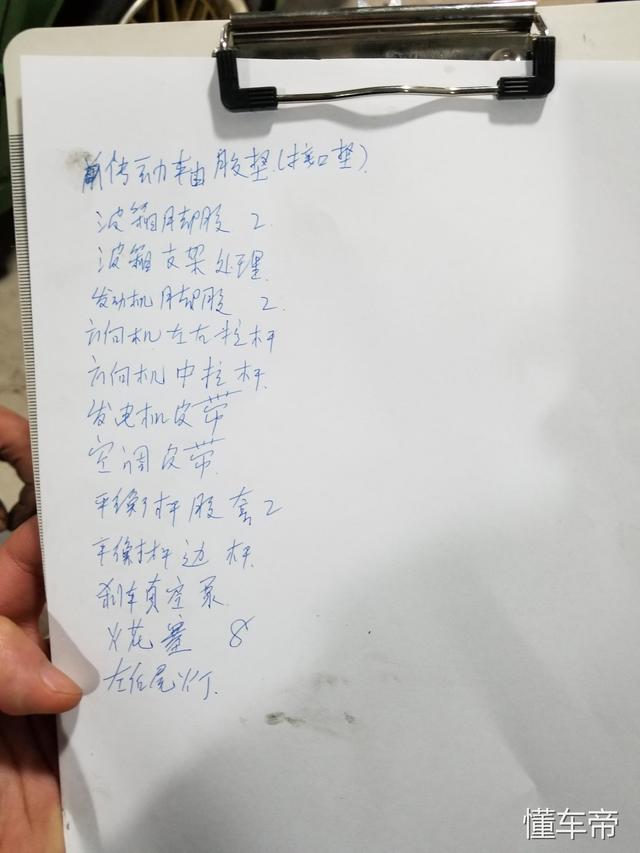 前传动轴胶垫(接口垫)
波箱脚胶 2
波箱支架处理
发动机脚胶 2
方向机左右拉杆
方向机中拉杆
发电机皮带
空调皮带
平衡杆胶套2
平衡杆边杆
刹车真空泵
火花塞 8
左后尾灯
懂车帝